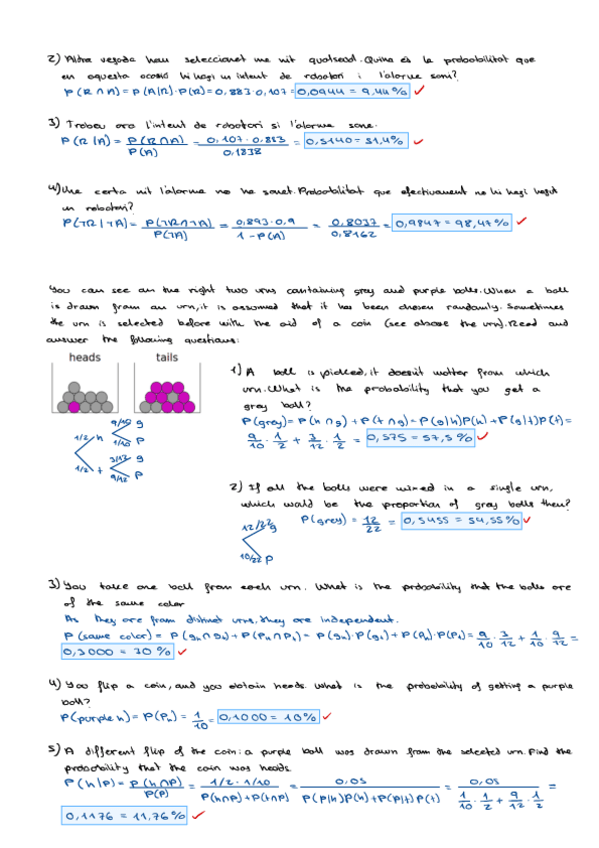 2) Altra vegada hau seleccionat una nit qualsevol. Quina és la probabilitat que
en aquesta ocasió hi hagi un intent de robatori i l'alarma soni?
P(R∩A) = P(A|R)·P(R) = 0,883·0,107 = 0,0944 = 9,44% ✓
3) Trobeu ara l'intent de robatori si l'alarma sona.
P(R|A) = P(R∩A)/P(A) = 0,107·0,883/0,1838 = 0,5140 = 51,4% ✓
4) Una certa nit l'alarma no ha sonat. Probabilitat que efectivament no hi hagi hagut
un robatori?
P(¬R|¬A) = P(¬R∩¬A)/P(¬A) = 0,893·0,9/1-P(A) = 0,8037/0,8162 = 0,9847 = 98,47% ✓
You can see on the right two urns containing grey and purple balls. When a ball
is drawn from an urn, it is assumed that it has been chosen randomly. Sometimes
the urn is selected before with the aid of a coin (see above the urn). Read and
answer the following questions:
heads tails
1/2 h 9/10 g
1/10 p
1/2 t 3/12 g
9/12 p
1) A ball is picked, it doesn't matter from which
urn. What is the probability that you get a
grey ball?
P(grey) = P(h∩g) + P(t∩g) = P(g|h)P(h) + P(g|t)P(t) =
9/10 · 1/2 + 3/12 · 1/2 = 0,575 = 57,5% ✓
2) If all the balls were mixed in a single urn,
which would be the proportion of grey balls then?
12/22 g
10/22 p
P(grey) = 12/22 = 0,5455 = 54,55% ✓
3) You take one ball from each urn. What is the probability that the balls are
of the same color
As they are from distinct urns, they are independent.
P(same color) = P(gh∩gt) + P(Ph∩Pt) = P(gh)·P(gt) + P(Ph)·P(Pt) = 9/10 · 3/12 + 1/10 · 9/12 =
0,3000 = 30% ✓
4) You flip a coin, and you obtain heads. What is the probability of getting a purple
ball?
P(purple h) = P(Ph) = 1/10 = 0,1000 = 10% ✓
5) A different flip of the coin: a purple ball was drawn from the selected urn. Find the
probability that the coin was heads.
P(h|p) = P(h∩p)/P(p) = 1/2·1/10/P(h∩p)+P(t∩p) = 0,05/P(p|h)P(h)+P(p|t)P(t) = 0,05/1/10 · 1/2 + 9/12 · 1/2 =
0,1176 = 11,76% ✓